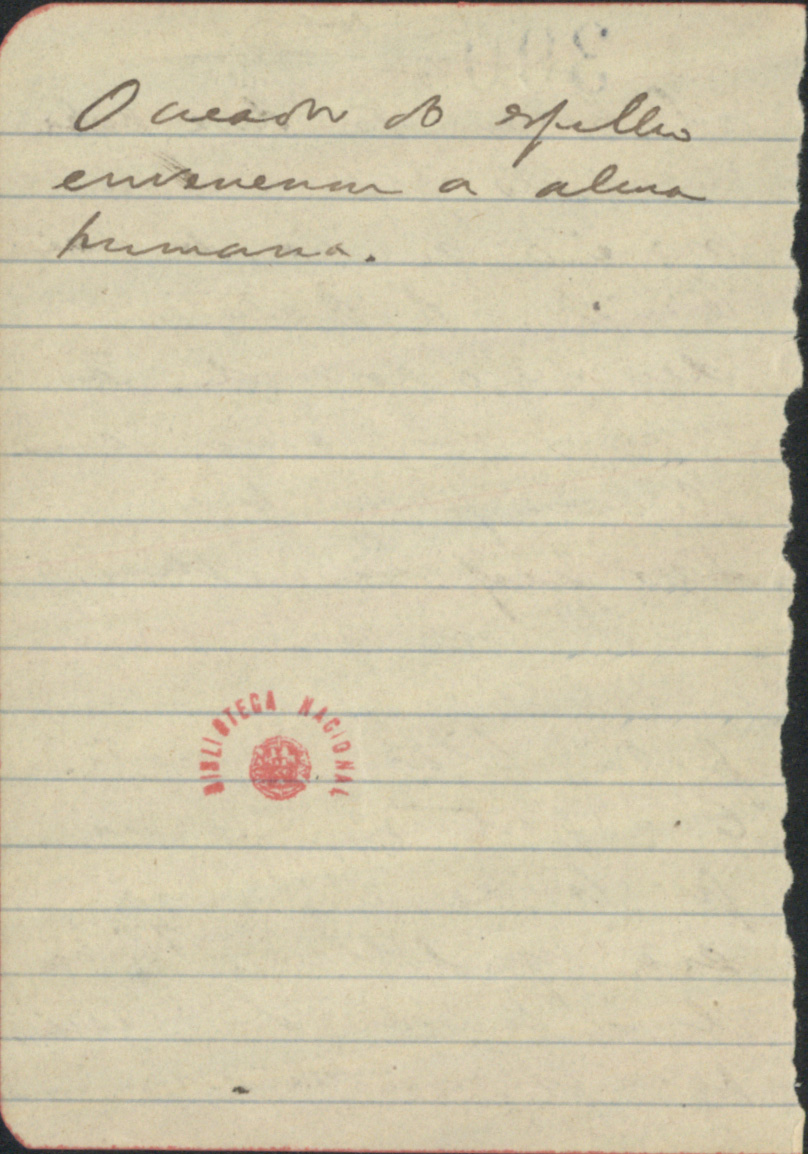 O creador do espelho
envenenou a alma
humana.
BIBLIOTECA NACIONAL